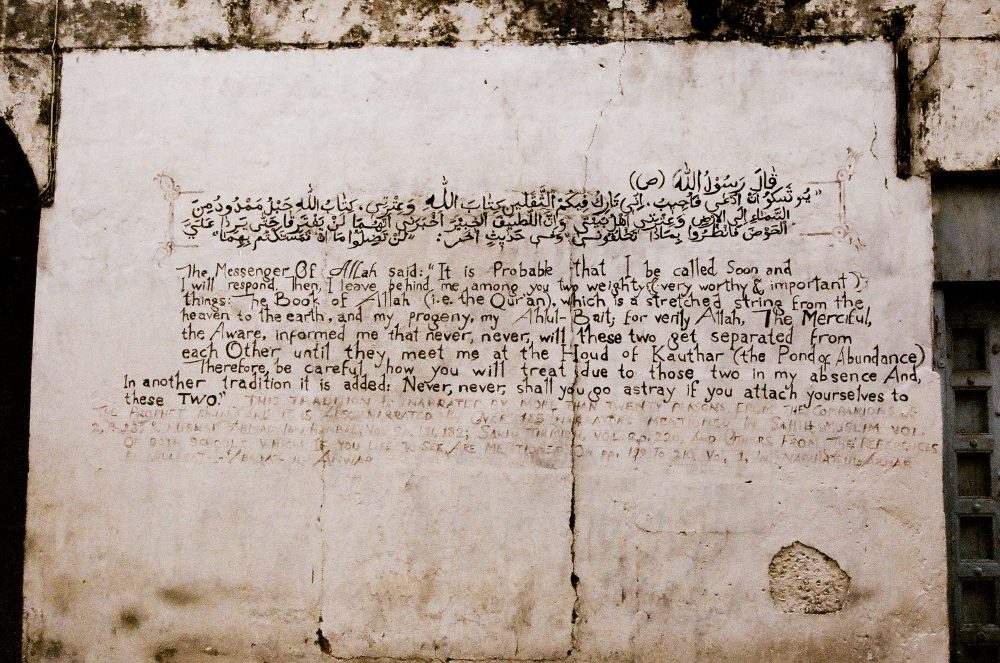 قَالَ رَسُوْلُ اللهِ (ص)
"يُوْشَكُ أَنْ أُدْعَى فَأُجِيْبُ، اِنِّي تَارِكٌ فِيْكُمُ الثَّقَلَيْنِ كِتَابَ اللهِ وَعِتْرَتِي، كِتَابُ اللهِ حَبْلٌ مَمْدُوْدٌ مِنَ
السَّمَاءِ إِلَى الاَرْضِ وَعِتْرَتِي أَهْلُ بَيْتِي وَاَنَّ اللَّطِيْفَ الْخَبِيْرَ أَخْبَرَنِي أَنَّهُمَا لَنْ يَفْتَرِقَا حَتَّى يَرِدَا عَلَيَّ
الْحَوْضَ فَانْظُرُوا بِمَاذَا تَخْلُفُوْنِي" وَفِي حَدِيْثٍ آخَرَ: "لَنْ تَضِلُّوا مَا اِنْ تَمَسَّكْتُمْ بِهِمَا"
The Messenger Of Allah said: "It is Probable that I be called Soon and
I will respond. Then, I leave behind me among you two weighty (very worthy & important)
things: The Book of Allah (i.e. the Qur'an), which is a stretched string from the
heaven to the earth, and my progeny, my Ahlul-Bait; for verily Allah, The Merciful,
the Aware, informed me that never, never, will these two get separated from
each Other until they meet me at the Houd of Kauthar (the Pond of Abundance)
Therefore, be careful how you will treat due to those two in my absence And,
In another tradition it is added: Never, never, shall you go astray if you attach yourselves to
these TWO."
THIS TRADITION IS NARRATED BY MORE THAN TWENTY PERSONS FROM THE COMPANIONS OF
THE PROPHET AND IT IS ALSO NARRATED BY OVER 185 NARRATORS MENTIONED IN SAHIH MUSLIM VOL.
2, P. 238 MUSNAD AHMAD IBN HANBAL, VOL. 5, P. 181, 182; SAHIH TIRMIZI, VOL. 2, P. 220, AND OTHERS FROM THE REFERENCES
OF BOTH SCHOOLS WHICH IF YOU LIKE TO SEE ARE MENTIONED ON PP. 199 TO 210, VOL. 1,
AL ANWAR